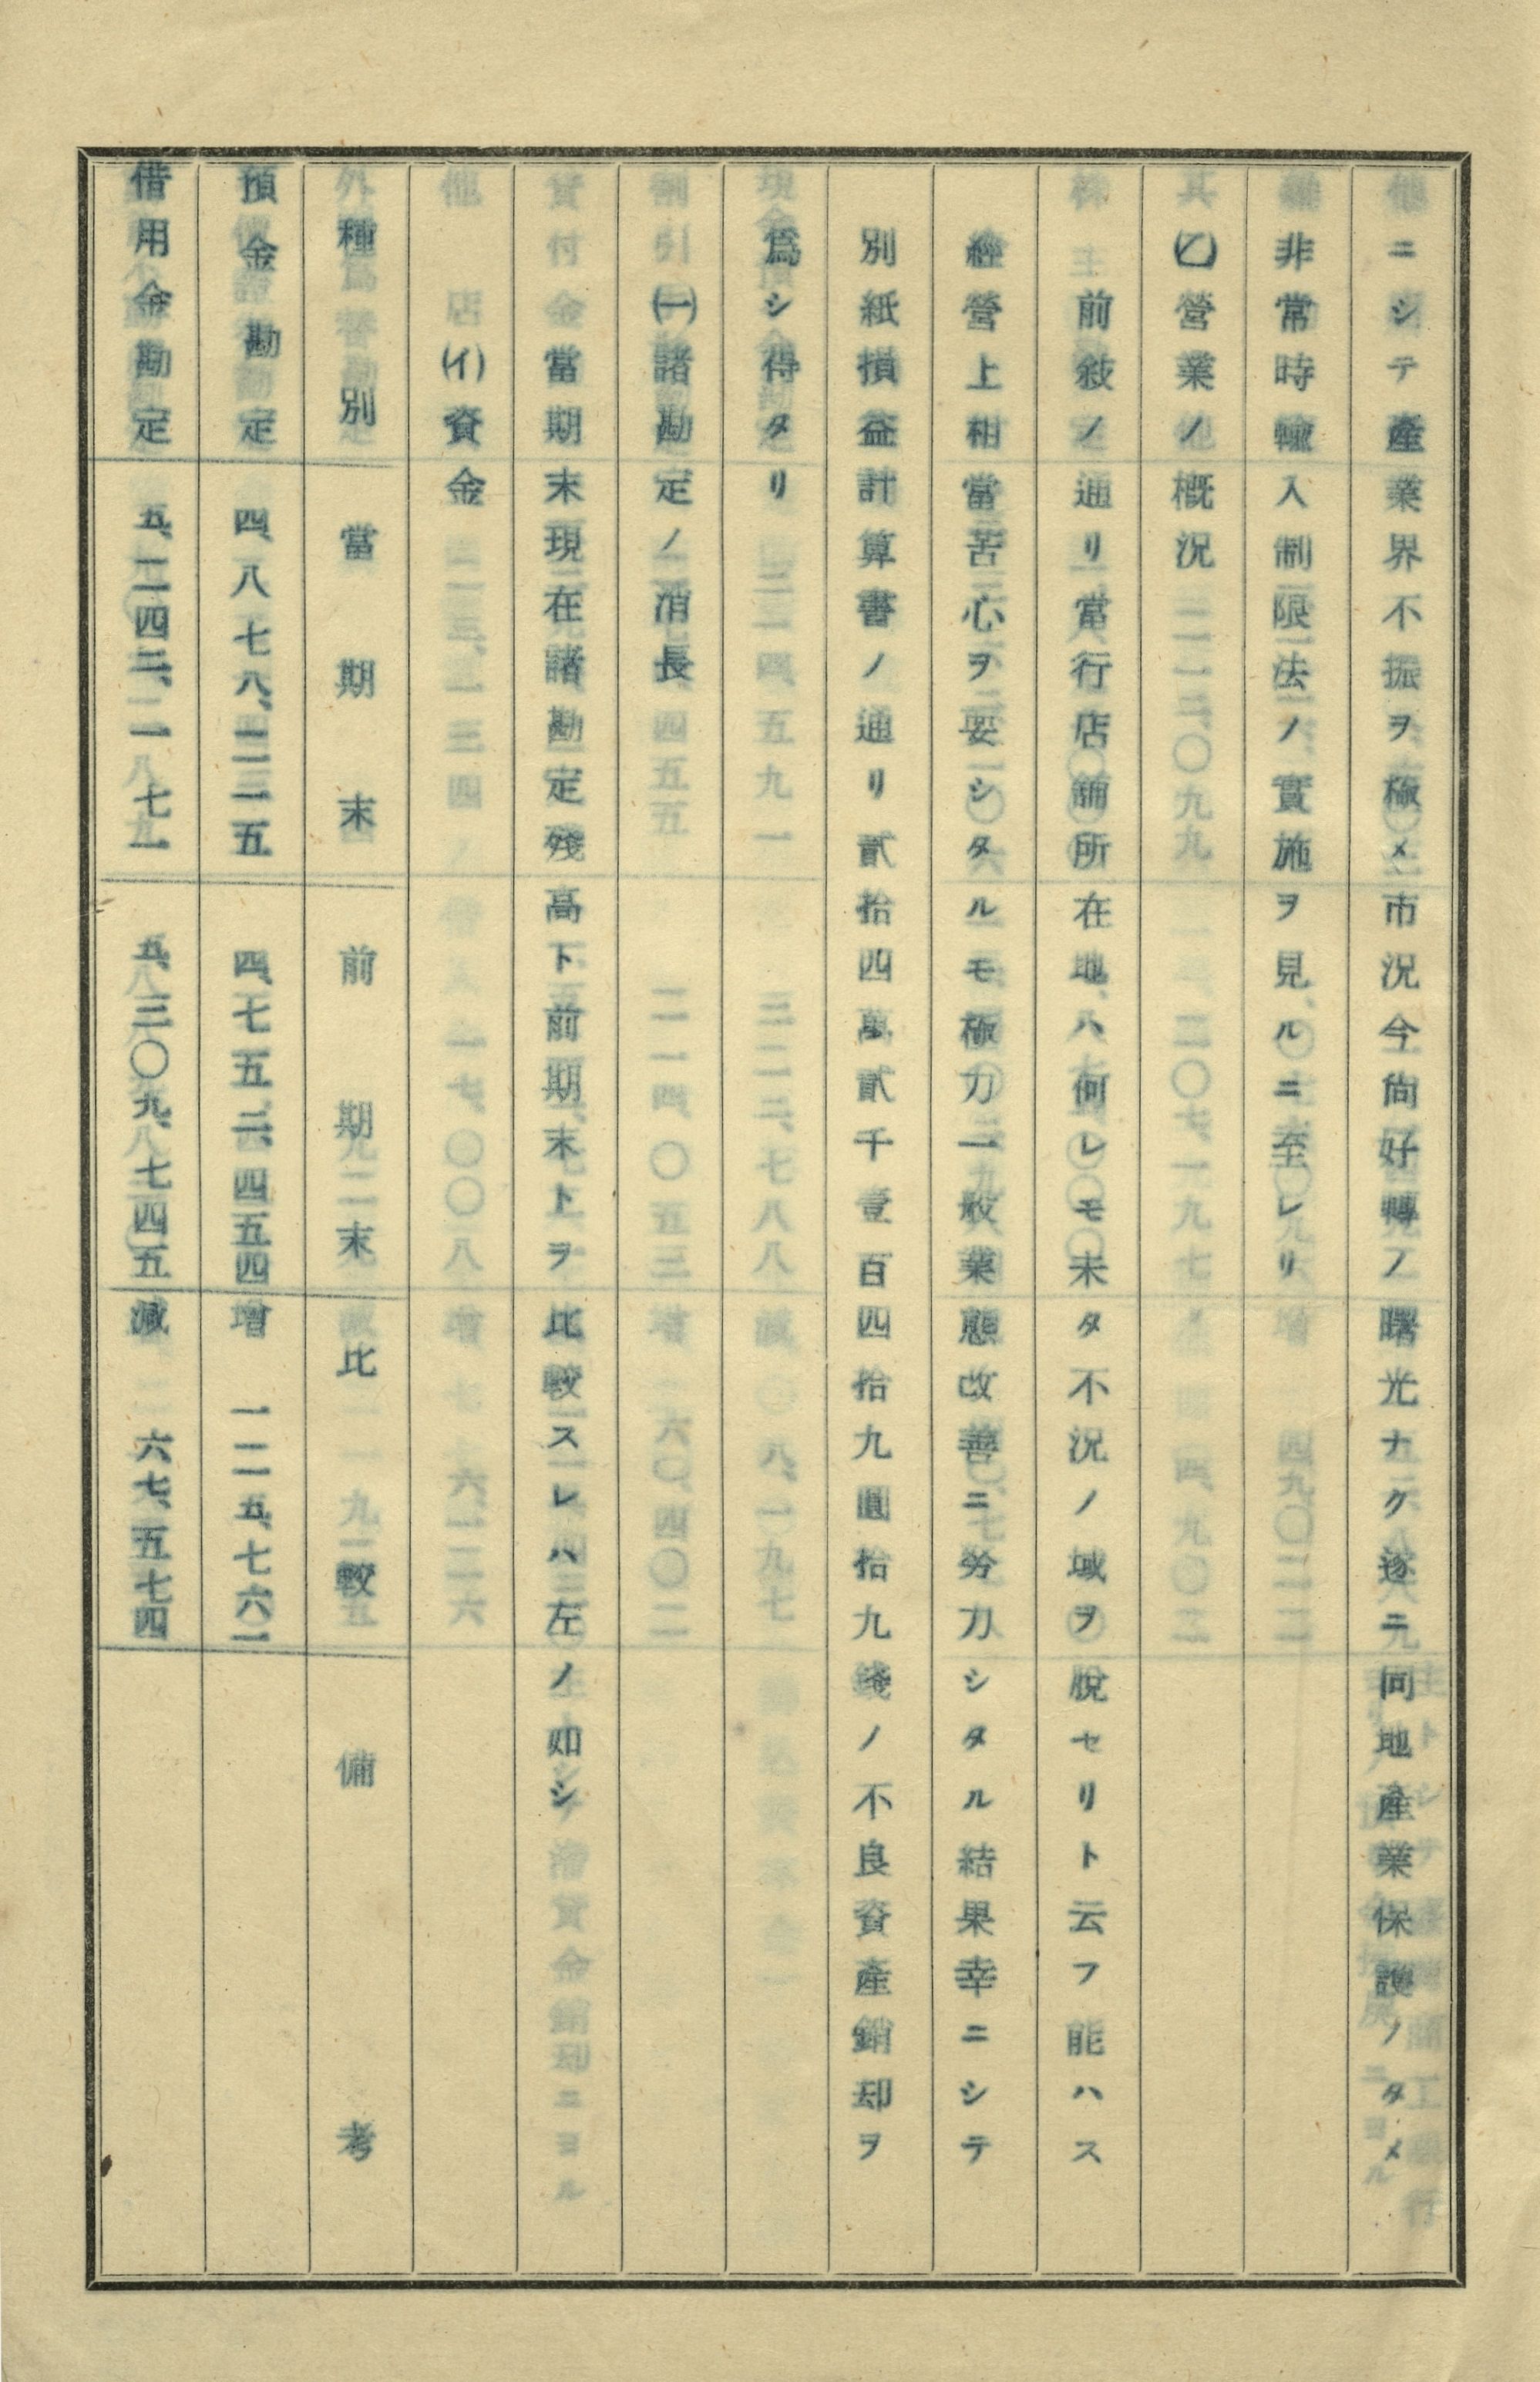 ニシテ產業界不振ヲ極メ市況今尙好轉ノ曙光ナク逐ニ同地產業保護ノタメ
非常時輸入制限法ノ實施ヲ見ルニ至レリ
(乙)營業ノ概況
前敍ノ通リ當行店舖所在地ハ何レモ未タ不況ノ域ヲ脫セリト云フ能ハス
經營上相當苦心ヲ要シタルモ極力一般業態改善ニ努力シタル結果幸ニシテ
別紙損益計算書ノ通リ貳拾四萬貳千壹百四拾九圓拾九錢ノ不良資產銷却ヲ
爲シ得タリ
(一)諸勘定ノ消長
當期末現在諸勘定殘高ト前期末トヲ比較スレハ左ノ如シ
(イ)資金
種別 當期末 前期末 比較 備考
預金勘定 四、八七八、二一五 四、七五二、四五四 增 一二五、七六一
借用金勘定 五、二四二、一七一 五、三〇九、七四五 減 六七、五七四